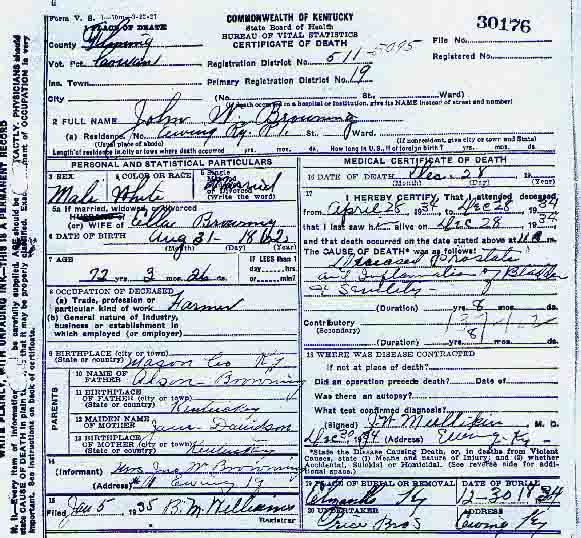 Form V. S.
COMMONWEALTH OF KENTUCKY
State Board of Health
BUREAU OF VITAL STATISTICS
CERTIFICATE OF DEATH
30176
1 PLACE OF DEATH
County Fleming
Vot. Pct. Cowan
Ins. Town
City
File No.
Registered No.
Registration District No. 511-5095
Primary Registration District No. 19
(No. St., Ward)
(If death occurred in a hospital or institution, give its NAME instead of street and number)
2 FULL NAME John W. Browning
(a) Residence. No. Ewing Ky. R1. St., Ward.
(Usual place of abode) (If nonresident, give city or town and State)
Length of residence in city or town where death occurred yrs. mos. ds. How long in U. S., if of foreign birth? yrs. mos. ds.
PERSONAL AND STATISTICAL PARTICULARS
3 SEX 4 COLOR OR RACE 5 Single Married Widowed or Divorced (Write the word)
Male White Married
5a If married, widowed, or divorced
HUSBAND of
(or) WIFE of Ella Browning
6 DATE OF BIRTH Aug 31-1862
7 AGE
72 yrs. 3 mos. 26 ds.
If LESS than 1 day, hrs. or min.
8 OCCUPATION OF DECEASED
(a) Trade, profession or particular kind of work Farmer
(b) General nature of Industry, business or establishment in which employed (or employer)
9 BIRTHPLACE (city or town) (State or country) Mason Co Ky
PARENTS
10 NAME OF FATHER Alson Browning
11 BIRTHPLACE OF FATHER (city or town) (State or country) Kentucky
12 MAIDEN NAME OF MOTHER Jane Davidson
13 BIRTHPLACE OF MOTHER (city or town) (State or country) Kentucky
14 (Informant) Mrs W Browning
(Address) Ewing Ky
15 Filed Jan 5 1935 B. M. Williams
Registrar
MEDICAL CERTIFICATE OF DEATH
16 DATE OF DEATH Dec. 28
(Month) (Day) (Year)
17 I HEREBY CERTIFY, That I attended deceased
from April 28 34, to Dec 28 1934
that I last saw h alive on Dec 28 1934
and that death occurred on the date stated above at 11 m
The CAUSE OF DEATH* was as follows:
Prostate
and Inflammation of Bladder
& Senility
(Duration) yrs. 8 mos. ds.
Contributory
(Secondary)
(Duration) yrs. 8 mos. ds.
18 WHERE WAS DISEASE CONTRACTED
if not at place of death?
Did an operation precede death? Date of
Was there an autopsy?
What test confirmed diagnosis?
(Signed) J. H. Mullikin M. D.
Dec 30 1934 (Address) Ewing Ky
*State the Disease Causing Death, or, in deaths from Violent Causes, state (1) Means and nature of Injury; and (2) whether Accidental, Suicidal or Homicidal. (See reverse side for additional space.)
19 PLACE OF BURIAL OR REMOVAL DATE OF BURIAL
Ky 12-30 1934
20 UNDERTAKER (Address)
Price Bros Ewing Ky
WRITE PLAINLY, WITH UNFADING INK—THIS IS A PERMANENT RECORD